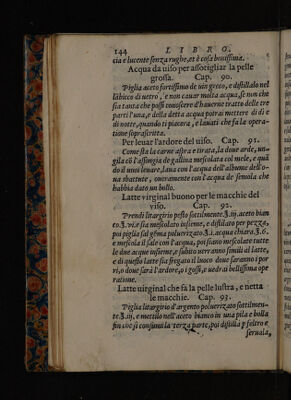 144 LIBRO.
cia e lucente senza rughe, et è cosa bonissima.
Acqua da uiso per assottigliar la pelle
grossa. Cap. 90.
Piglia aceto fortissimo de uin greco, e distillalo nel
labicco di uetro, e non cauar molta acqua, se non che
sia tanta che possi conoscere d'hauerne tratto delle tre
parti l'una, e della detta acqua potrai mettere di dì e
di notte, quando ti piacera, e lauati che fa la opera-
tione soprascritta.
Per leuar l'ardore del uiso. Cap. 91.
Come sia la carne aspra e tirata, la doue arde, un-
gila cõ l'assungia de gallina mescolata col mele, e quã
do il uuoi leuare, laua con l'acqua dell'albume dell'o-
ua sbattute, oueramente con l'acqua de simola che
habbia dato un bollo.
Latte virginal buono per le macchie del
viso. Cap. 92.
Prendi litargirio pesto sottilmente ℥.iij. aceto bian
co ℥.vi. e sia mescolato insieme, e distillato per pezza,
poi piglia sal gëma poluerizato ℥.i. acqua chiara ℥.6.
e mescola il sale con l'acqua, poi siano mescolate tutte
le due acque insieme, e subito uerranno simili al latte,
e di questo latte sia fregato il luoco doue saranno i por
ri, o doue sarà l'ardore, o i gossi, e uedrai bellissima ope
ratione.
Latte uirginal che fa la pelle lustra, e netta
le macchie. Cap. 93.
Piglia litargirio d'argento poluerizato sottilmen-
te ℥.iij. e mettilo nell'aceto bianco in una pila e bolla
fin che si consumi la terza parte, poi distilla p feltro e
seruala,